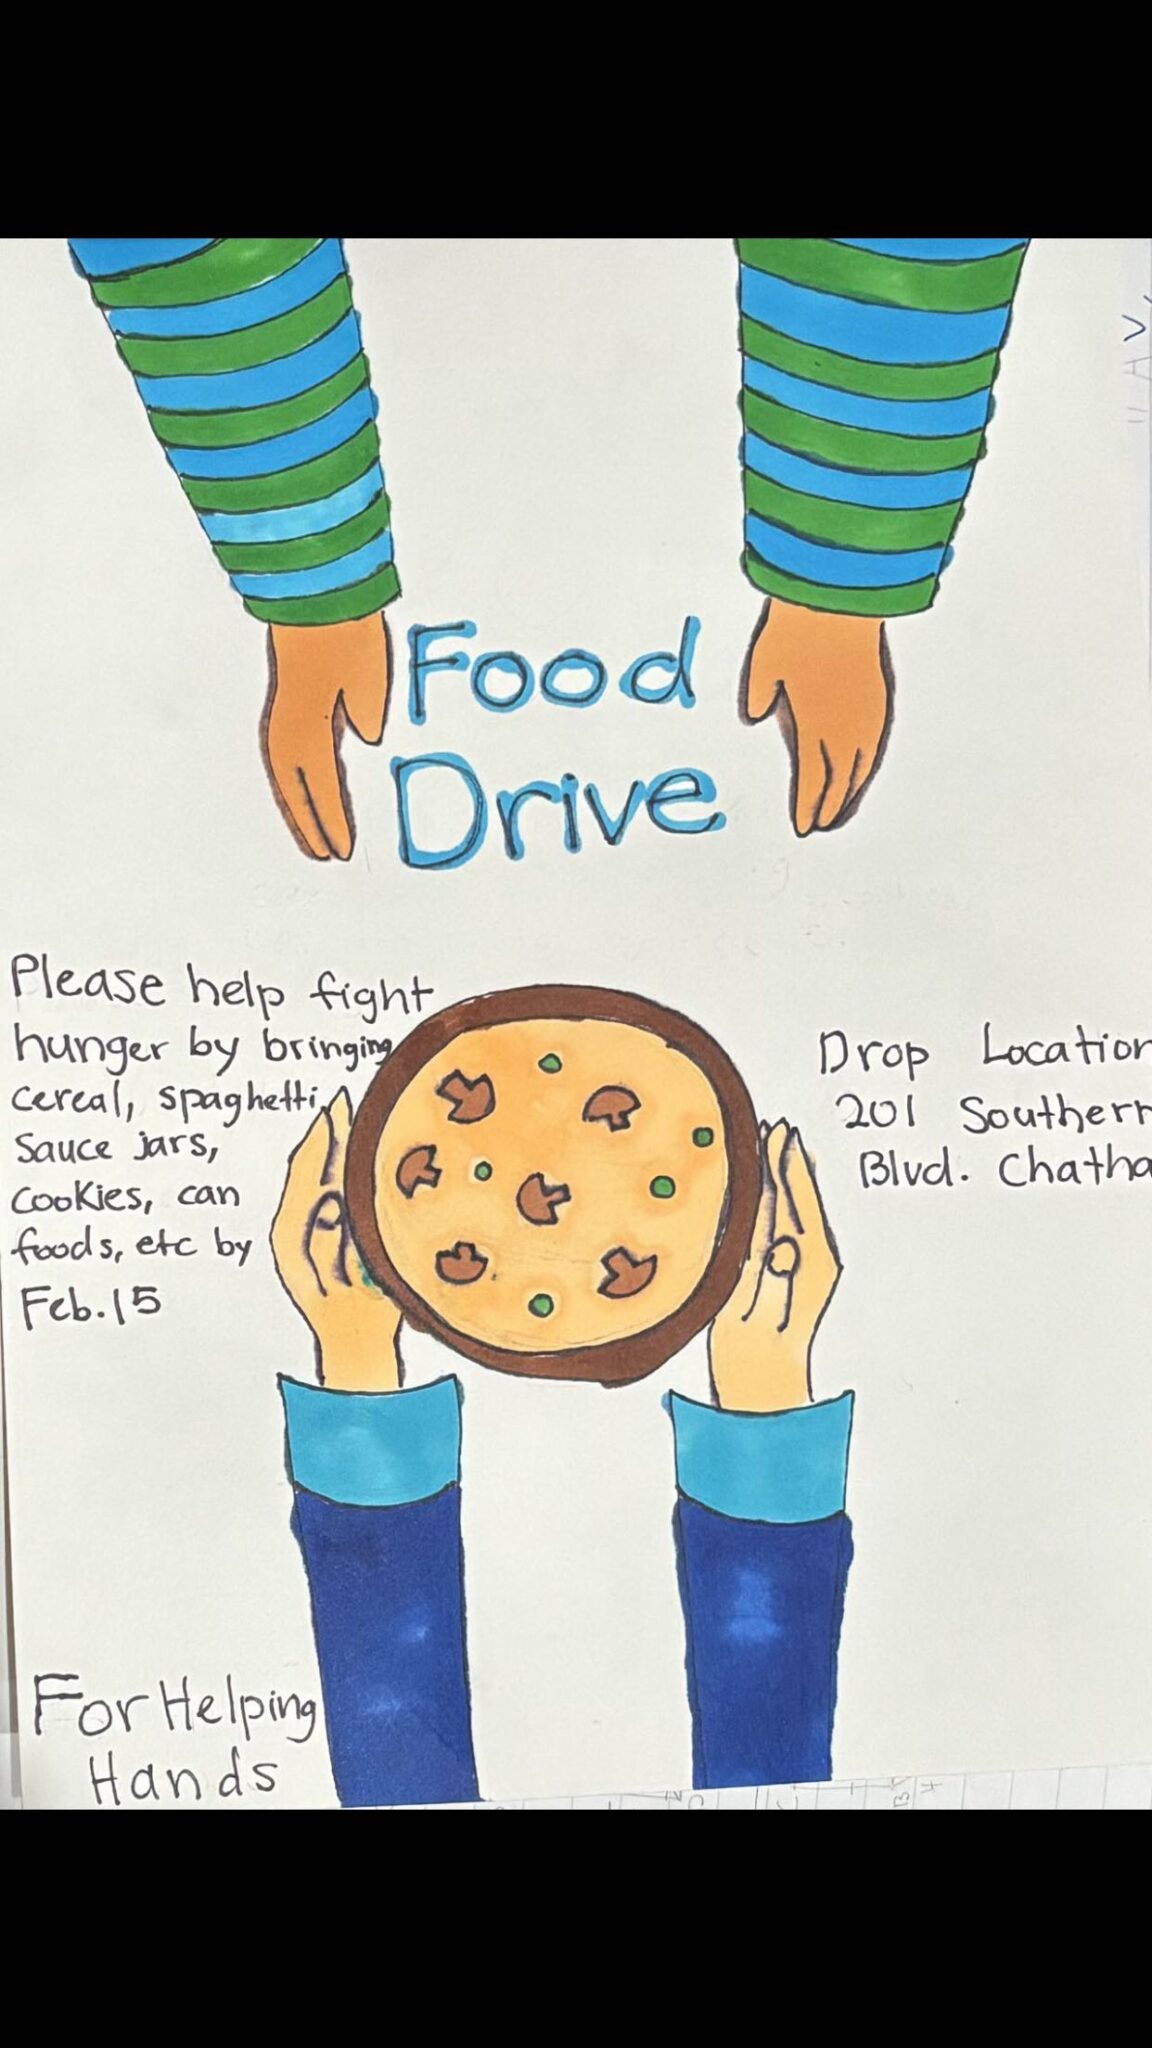 Food
Drive
Please help fight
hunger by bringing
cereal, spaghetti
Sauce jars,
cookies, can
foods, etc by
Feb. 15
Drop Location
201 Southern
Blvd. Chatha
For Helping
Hands